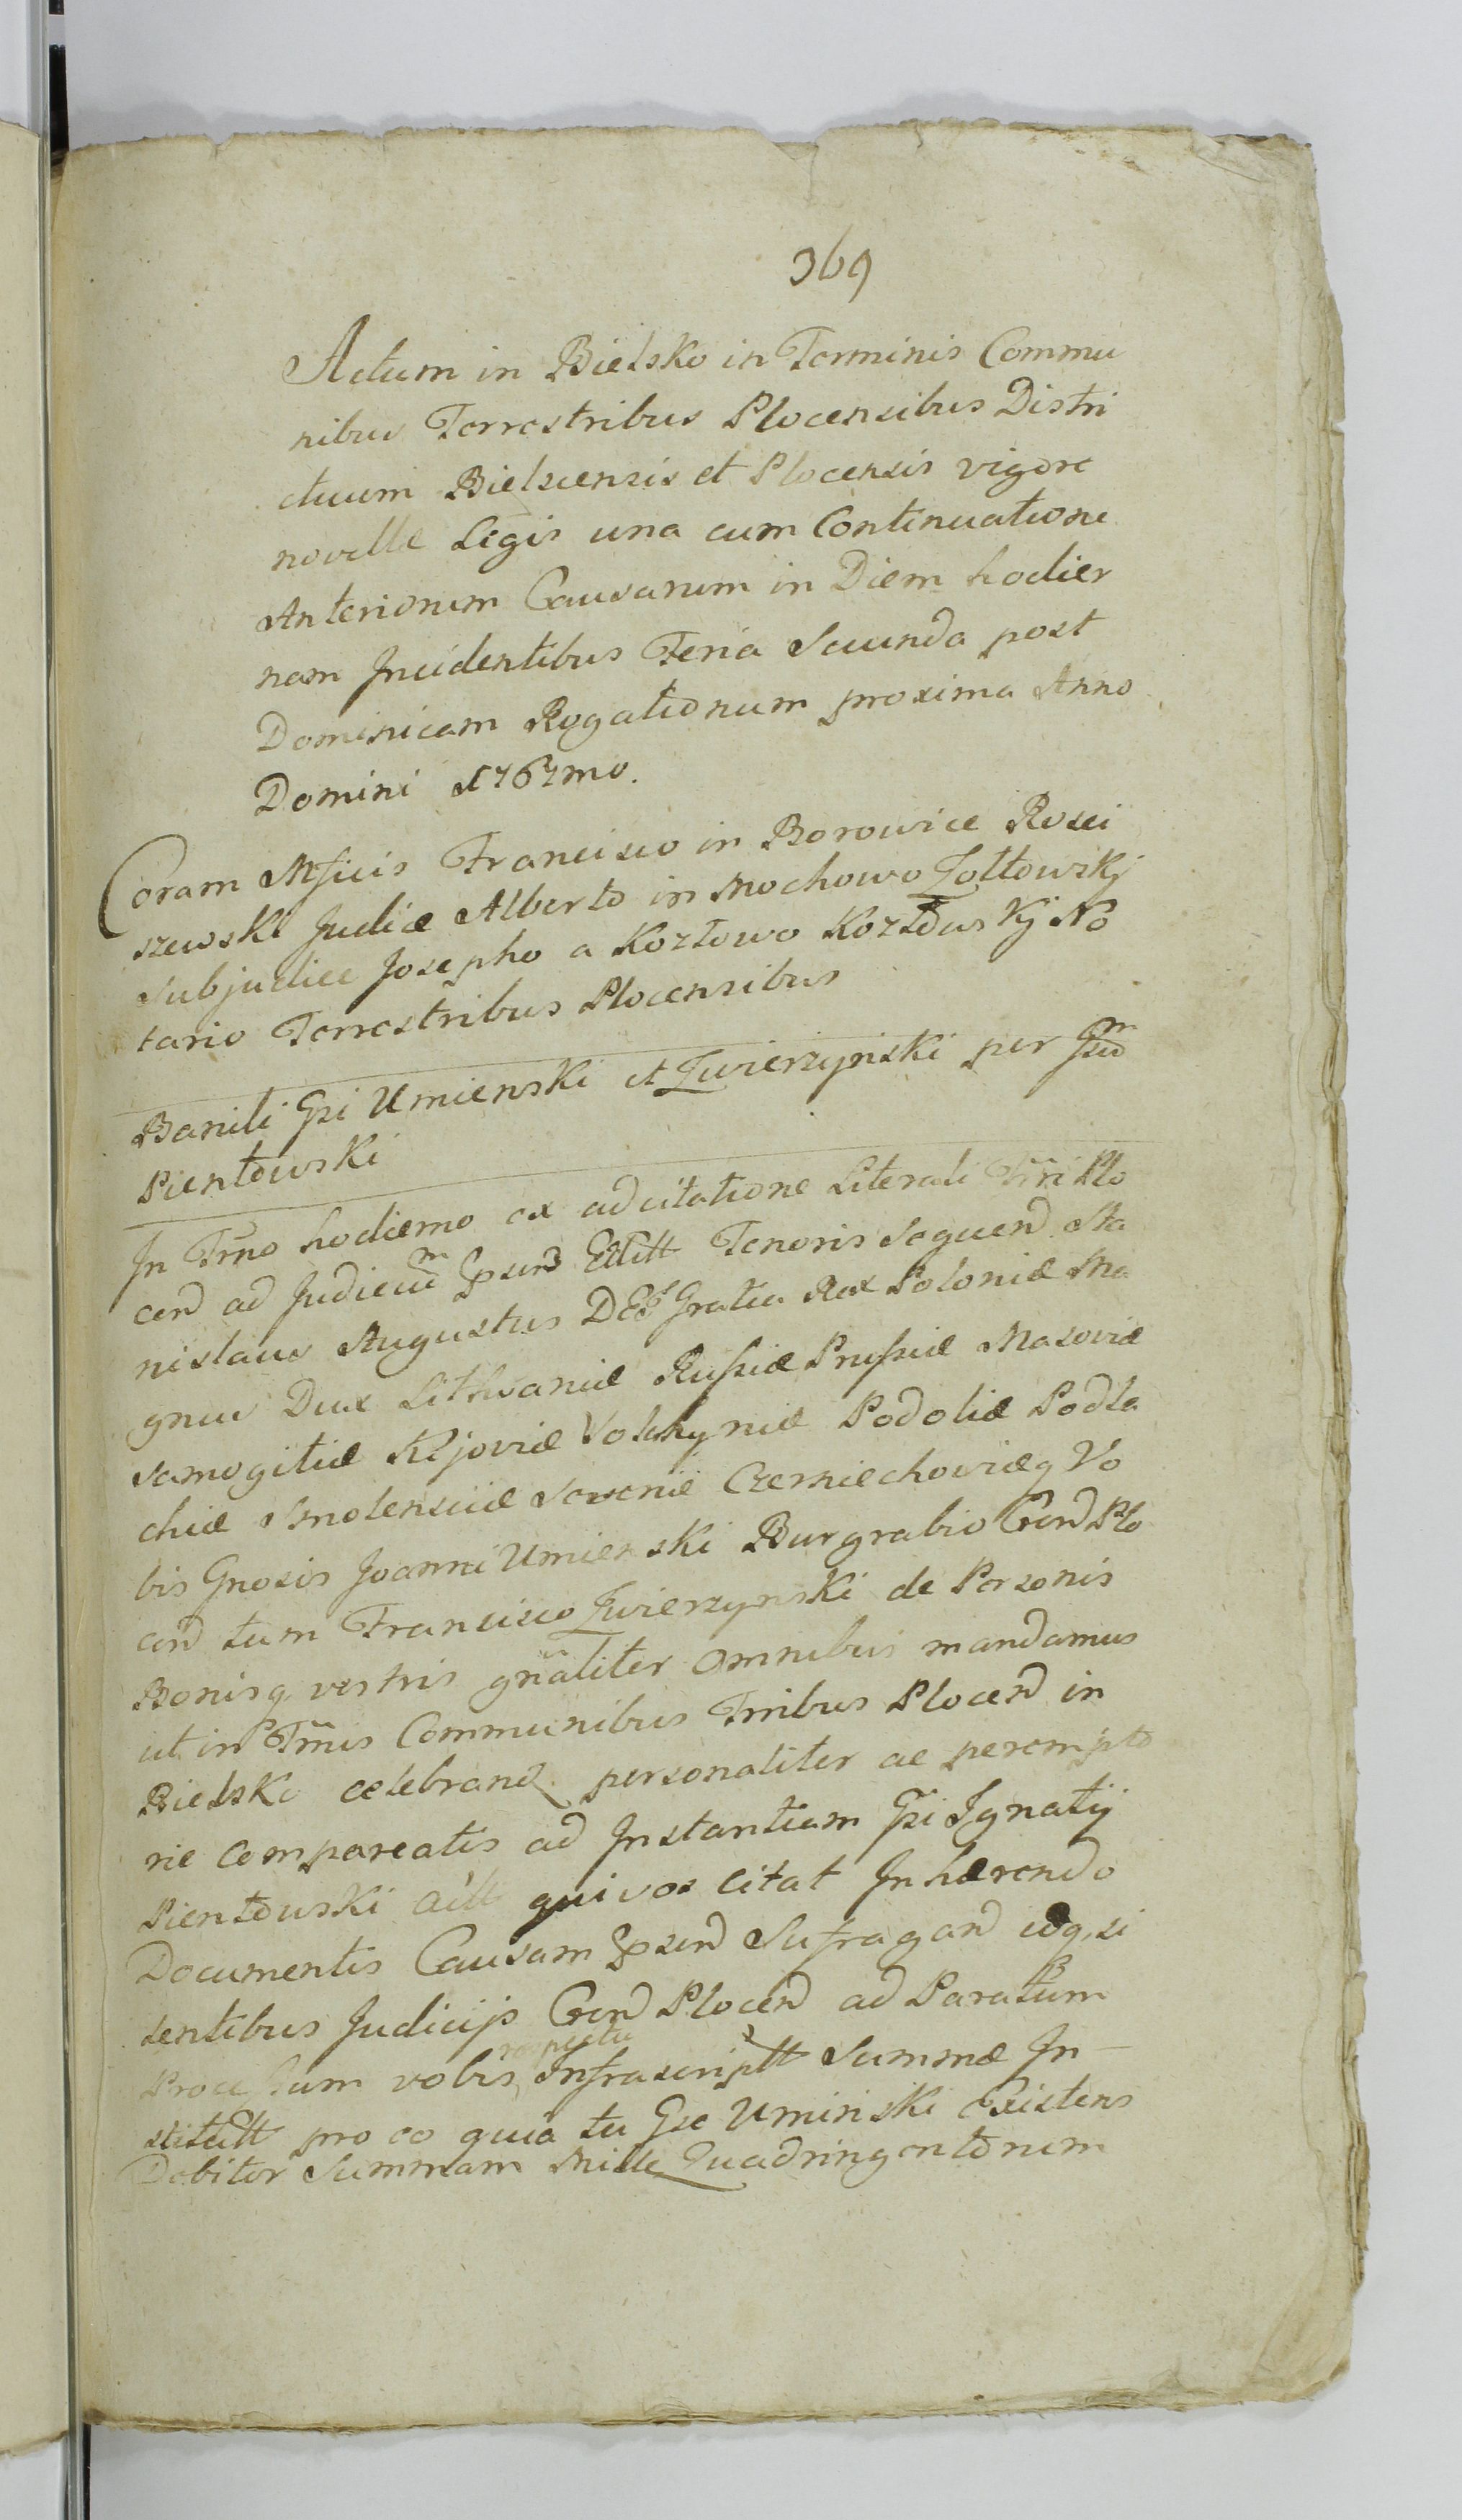 369
Actum in Bielsko in Terminis Commu
nibus Terrestribus Plocensibus Distri
ctuum Bielscensis et Plocensis vigore
novellæ Legis una cum Continuatione
Anteriorum Causarum in Diem hodier
nam Incidentibus Feria Secunda post
Dominicam Rogationum proxima Anno
Domini 1767mo.
Coram Mficis Francisco in Borowice Rosci
szewski Judice Alberto in Mochowo Zołtowskj
Subjudice Josepho a Kozłowo Kozłowskj No
tario Terrestribus Plocensibus
Baniti Gsi Umienski et Zwierzynski per Gsum
Pientowski
In Trno hodierno ex adcitatione Literali Trri Plo
cen ad Judicium Ipsen Editt Tenoris Sequen Sta
nislaus Augustus DEI Gratia Rex Poloniæ Ma
gnus Dux Lithvaniæ Rußiæ Prußiæ Masoviæ
Samogitiæ Kijoviæ Volhyniæ Podoliæ Podla
chiæ Smolensciæ Severiæ Czerniechoviæq Vo
bis Gnosis Joanni Umienski Burgrabio Cren Plo
cen tum Francisco Zwierzynski de Personis
Bonisq vestris gnaliter omnibus mandamus
ut in Trnis Communibus Trribus Plocen in
Bielsko celebran personaliter ac perempto
rie compareatis ad Instantiam Gsi Ignatij
Pientowski qui vos citat Inhærendo
Documentis Causam Ipsen Sufragan eoq, si
sentibus Judicijs Cren Plocen ad Paratum
Proceßum vobis respectu Infrascriptt Summæ In
stitutt pro eo quia tu Gse Uminski existens
Debitor Summam Mille Quadringentorum